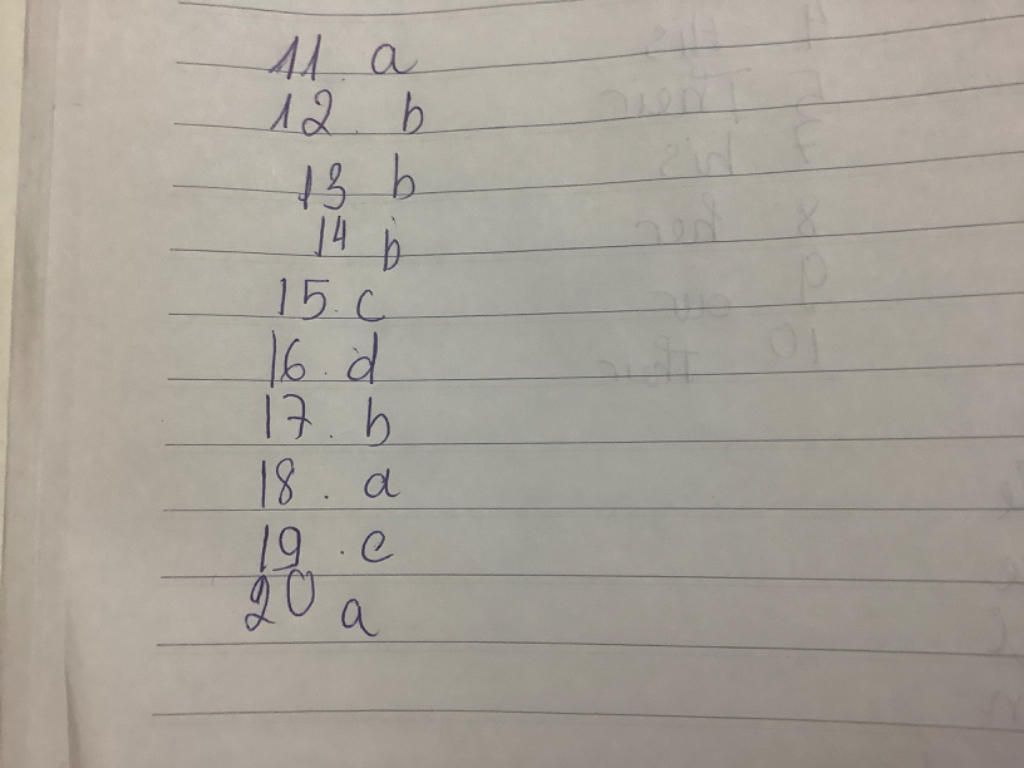 11. a
12. b
13 b
14 b
15. c
16. d
17. b
18. a
19. c
20 a